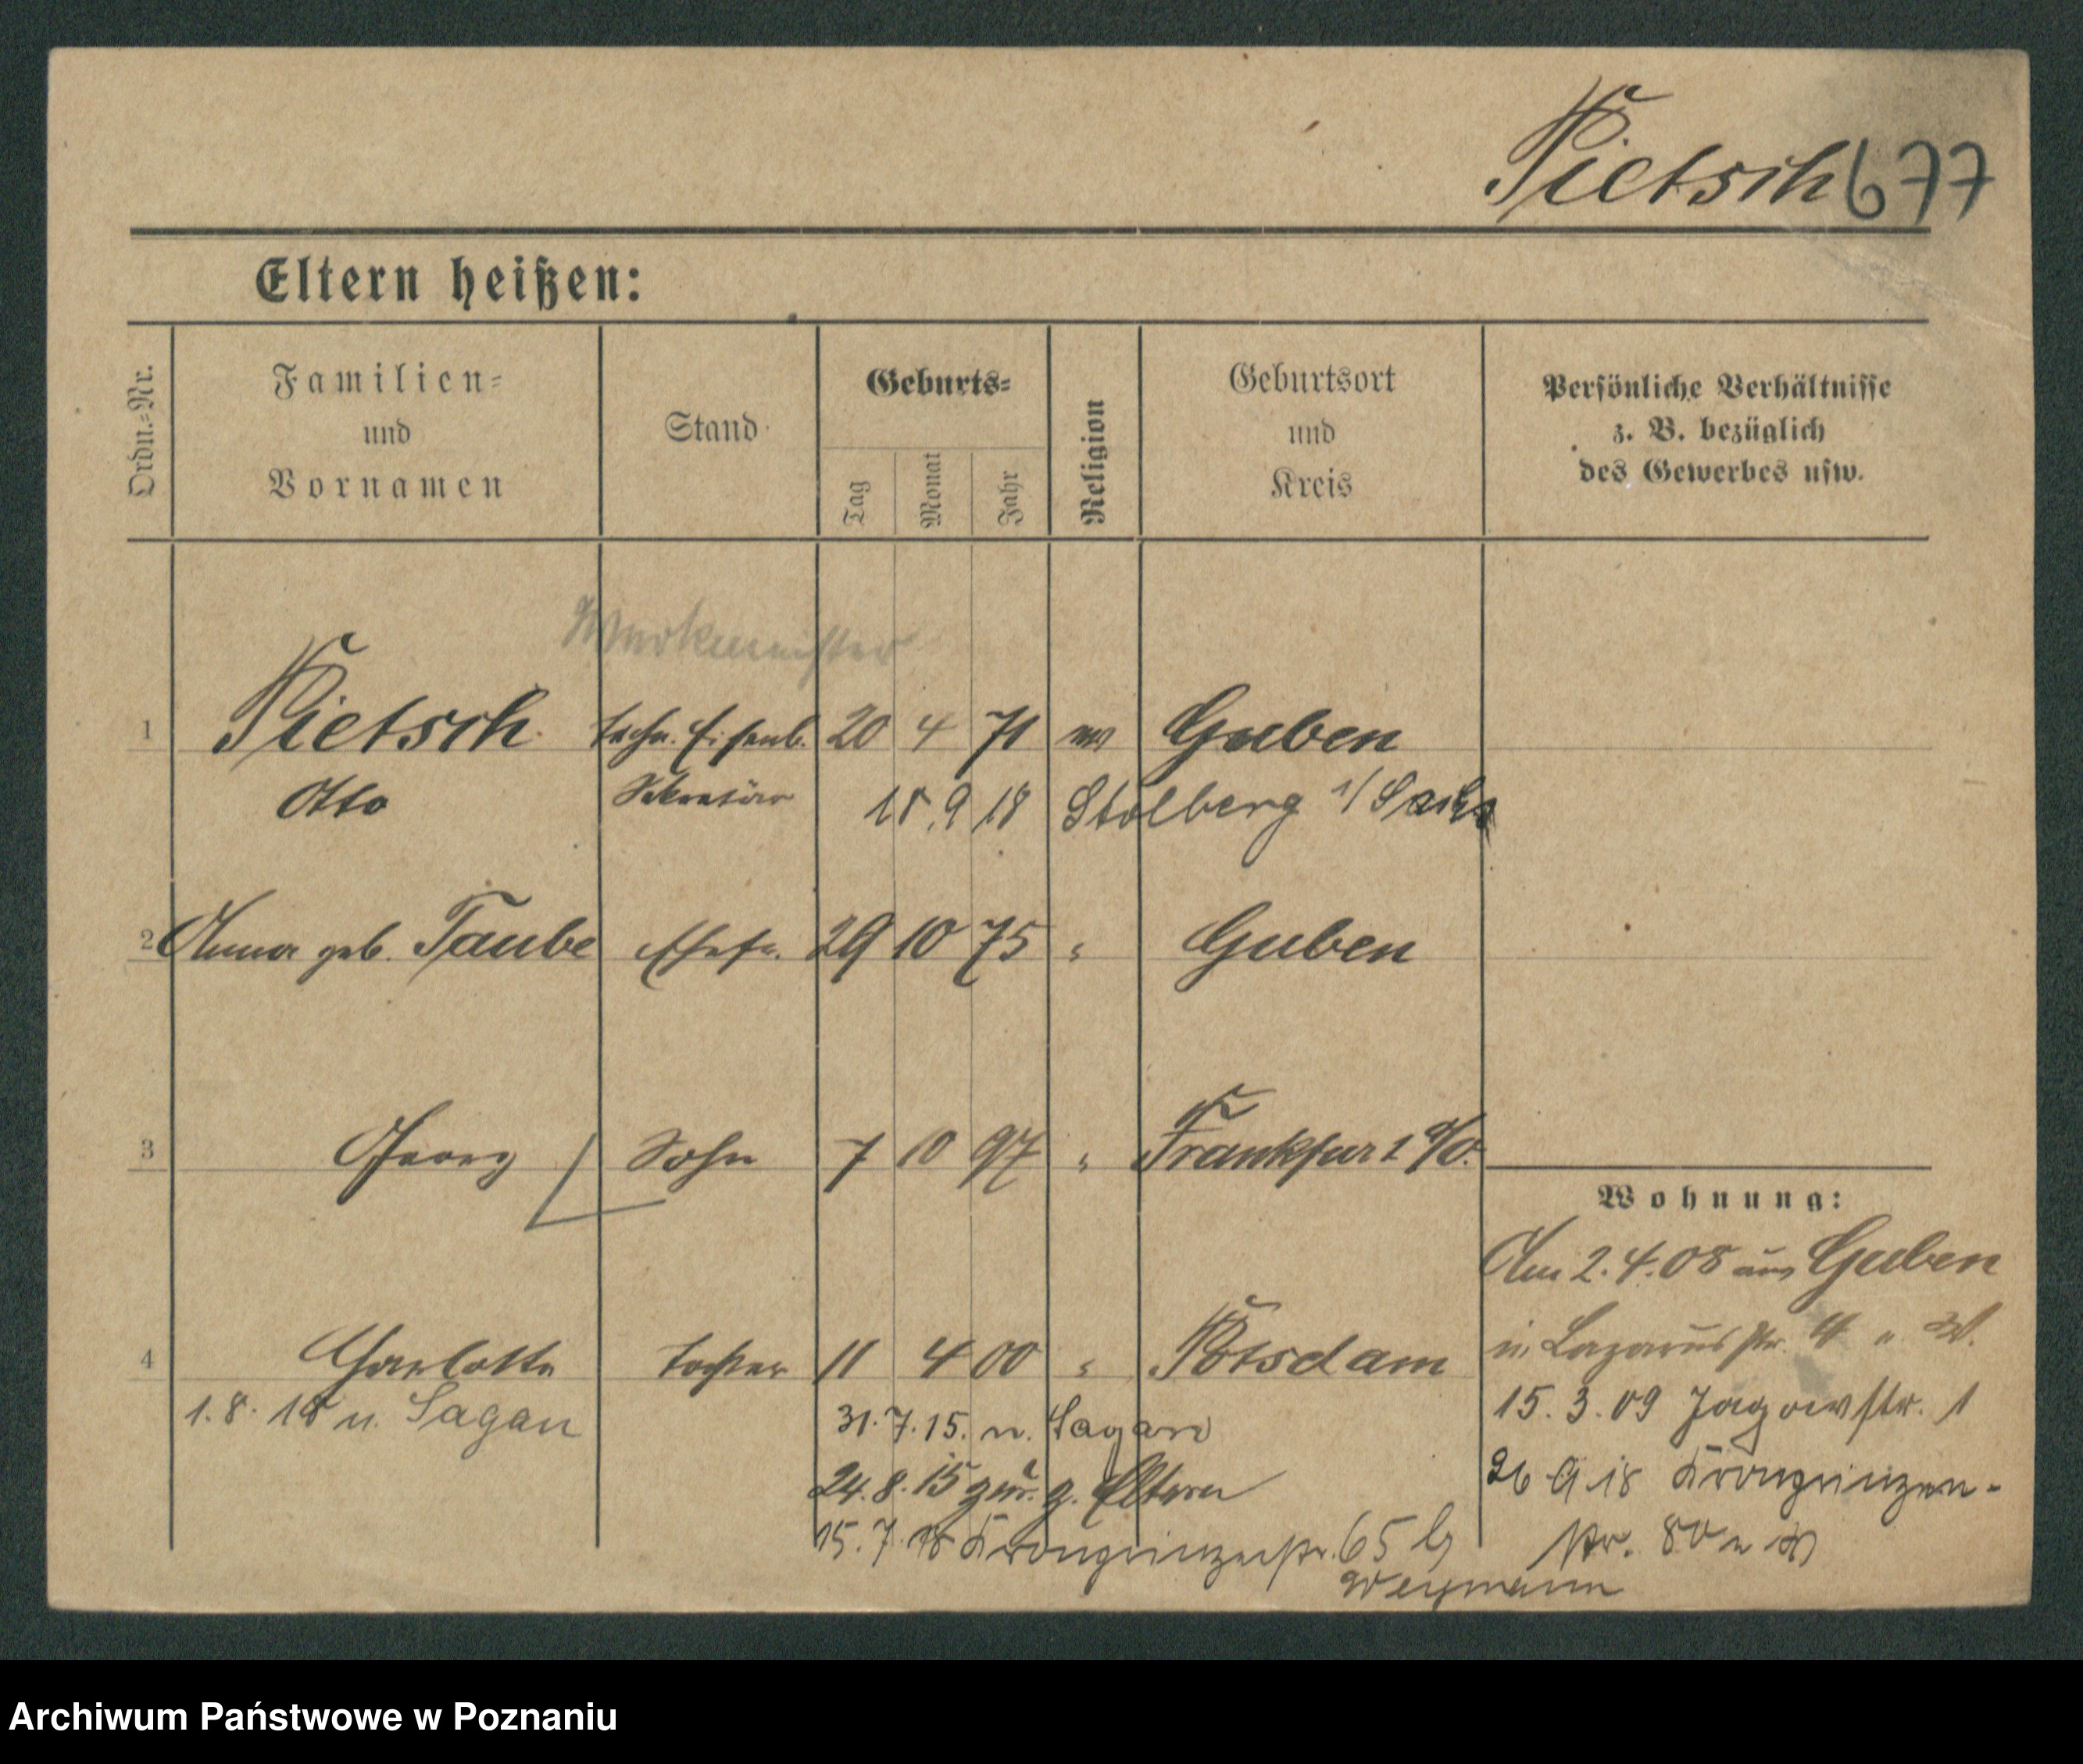 Pietsch 677
Eltern heißen:
Ordn.=Nr.
Familien=
und
Vornamen
Stand
Geburts=
Tag
Monat
Jahr
Religion
Geburtsort
und
Kreis
Persönliche Verhältnisse
z. B. bezüglich
des Gewerbes usw.
Werkmeister
1 Pietsch techn. Eisenb. 20 4 71 ev Guben
Otto Sekretär 18.9 18 Stolberg i/Sachs
2 Anna geb. Taube Ehefr. 29 10 75 " Guben
3 Georg Sohn 7 10 97 " Frankfurt a/O.
Wohnung:
Am 2.4.08 aus Guben
in Lazarusstr. 4 " W.
4 Charlotte Tochter 11 4 00 " Potsdam
1.8.18 n. Sagan
31.7.15. n. Sagan
24.8.15 zur. z. Eltern
15.7.18 Kronprinzenstr. 65 b
Weymann
15.3.09 Jagowstr. 1
26 9 18 Kronprinzen-
str. 80